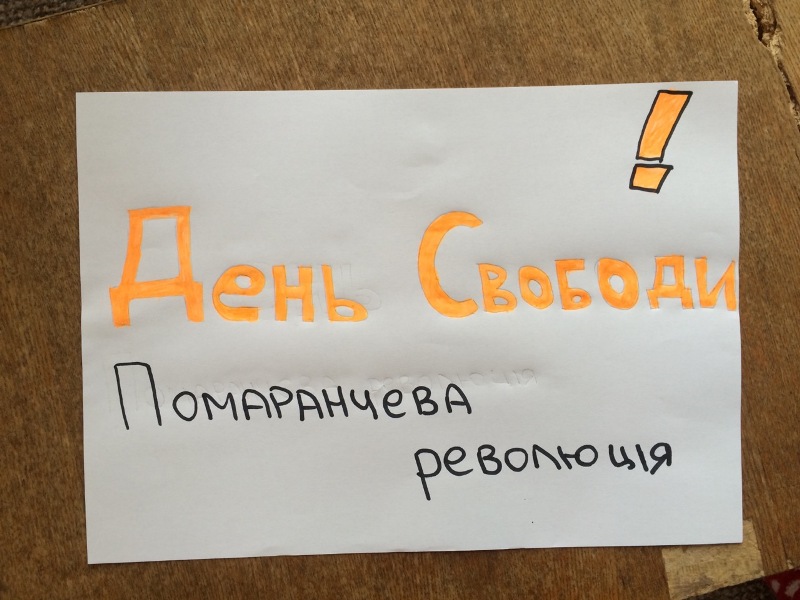 !
День Свободи
Помаранчева
революція